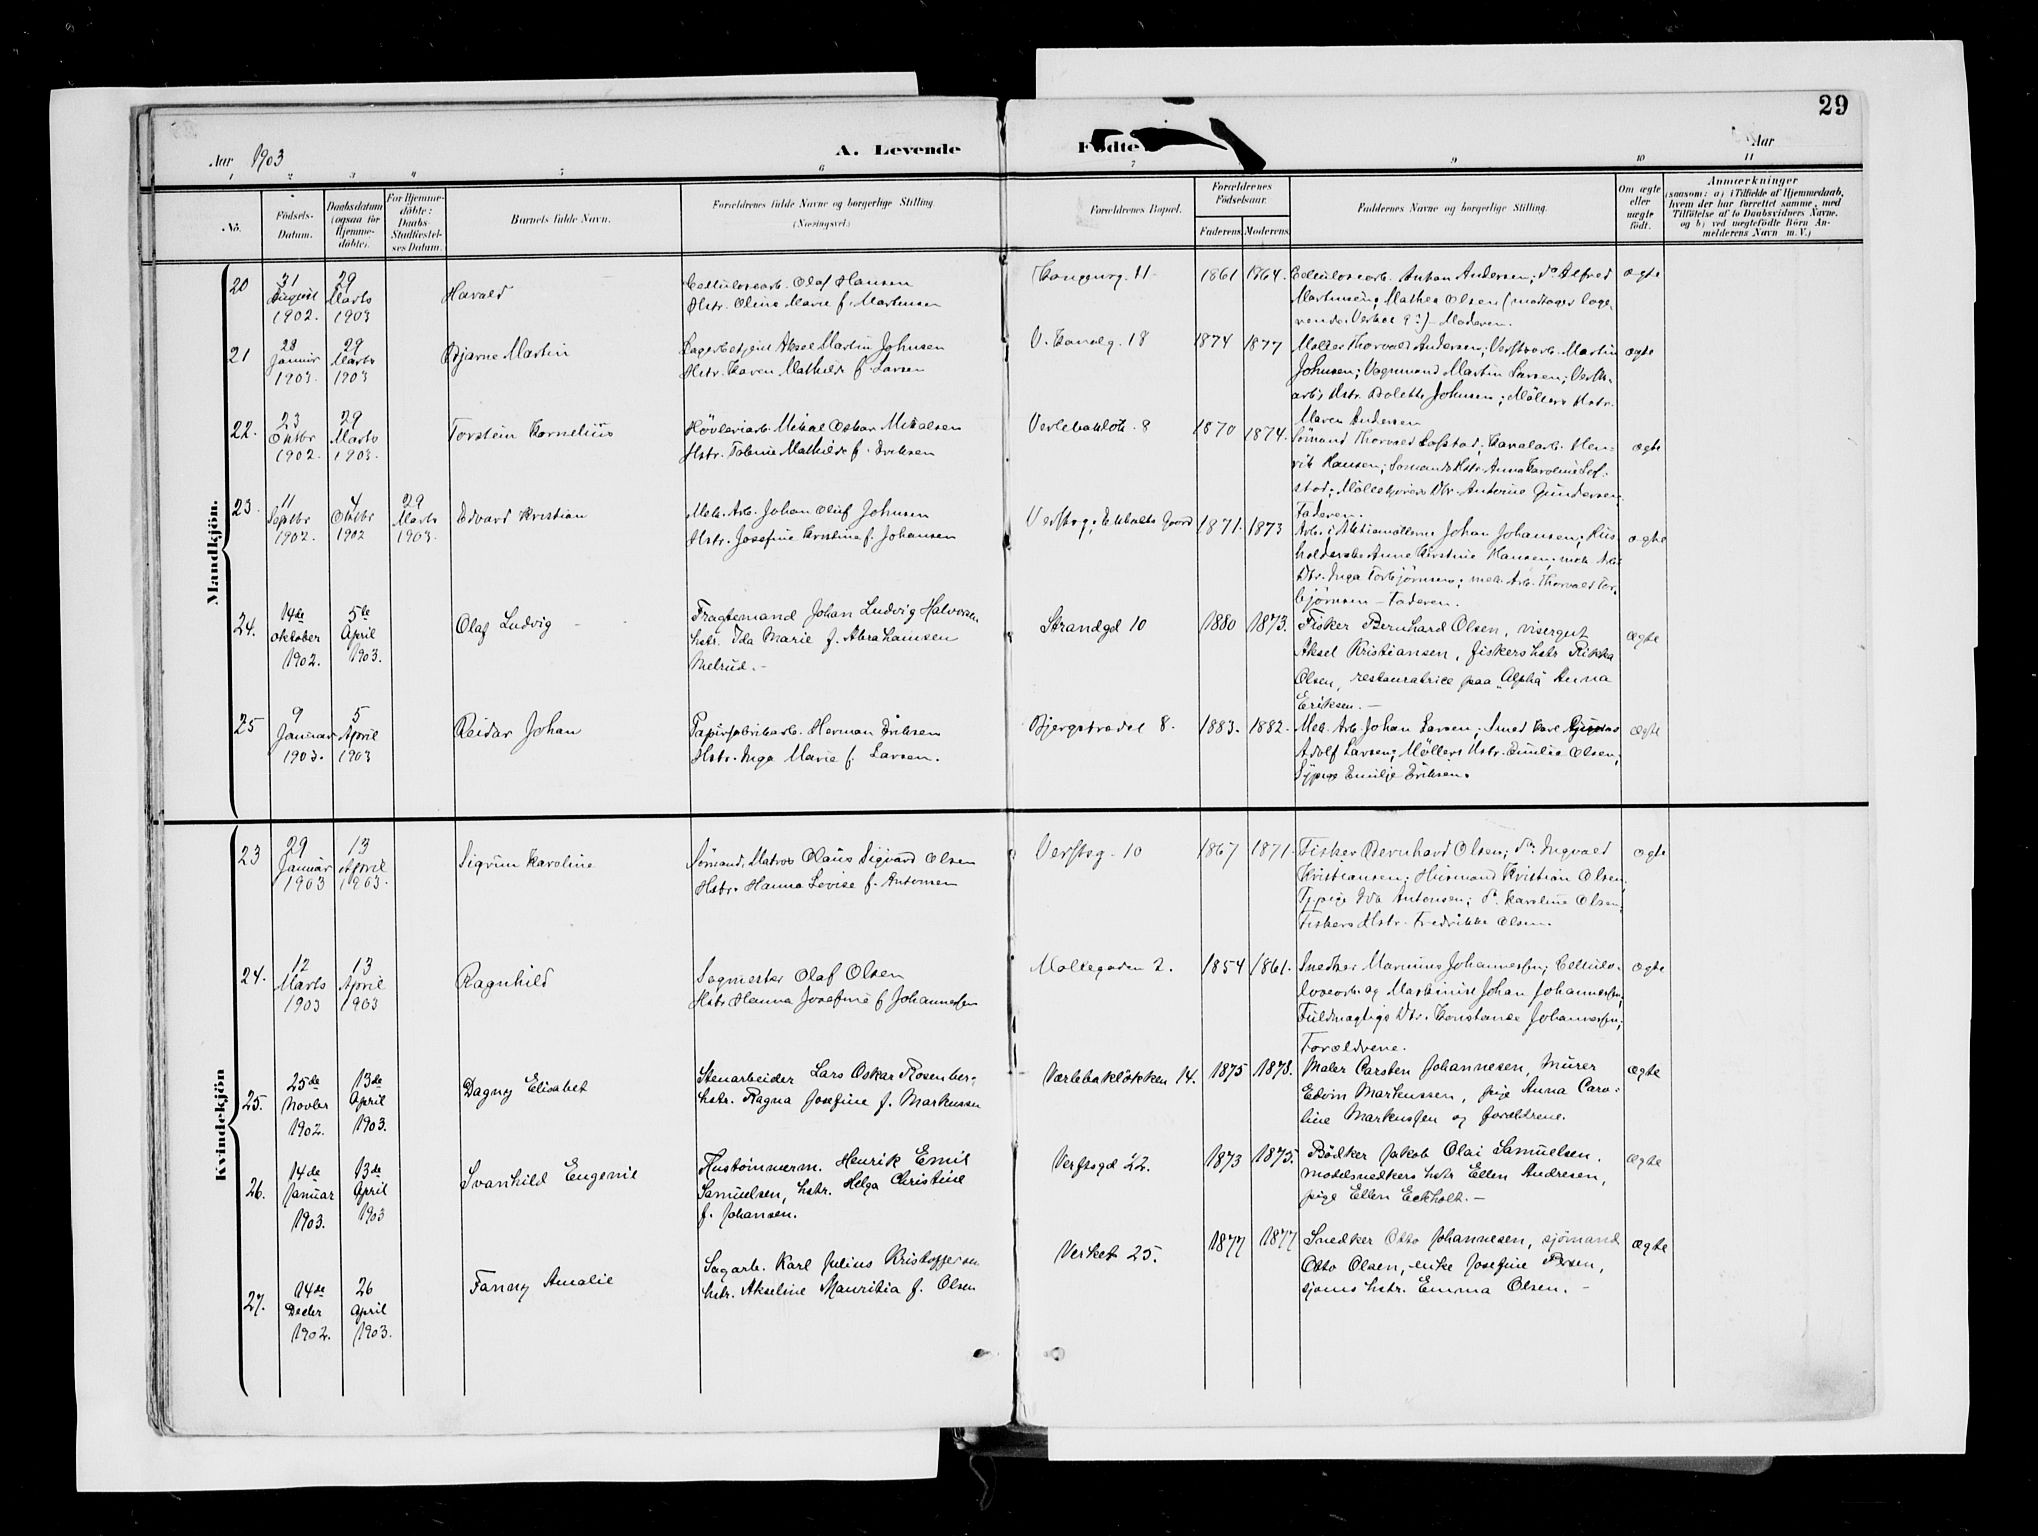 29
Aar 1903
A. Levende
Fødte
Aar
1 2 3 4 5 6 7 8 9 10 11
No.
Fødsels-Datum.
Daabsdatum (ogsaa for Hjemme-døbte).
For Hjemme-døbte: Daabs Stadfæstel-ses Datum.
Barnets fulde Navn.
Forældrenes fulde Navne og borgerlige Stilling. (Næringsvei.)
Forældrenes Bopæl.
Forældrenes Fødselsaar.
Faderens. Moderens.
Faddernes Navne og borgerlige Stilling.
Om ægte eller uægte født.
Anmærkninger
(saasom: a) i Tilfælde af Hjemmedaab,
hvem der har forrettet samme, med
Tilføielse af to Daabsvidners Navne,
og b) ved uægtefødte Børn An-
melderens Navn m. V.)
Mandkjön.
20 31 August 1902. 29 Marts 1903
Harald
Cellulosearb. Olaf Hansen
Hstr. Oline Marie f. Martinsen
11. 1861 1864.
Cellulosearb. Anton Andersen; do Alfred
Martinsen; Mathea Olsen
Moderen.
ægte
21 28 Januar 1903. 29 Marts 1903
Bjarne Martin
Aksel Martin Johnsen
Hstr. Karen Mathilde f. Larsen
V. Kanalg. 18 1874 1877
Møller Thorvald Andersen; Verftsarb. Martin
Johnsen; Vognmand Martin Larsen; Verfts-
arb. Hstr. Bolette Johnsen; Møllers Hstr.
Maren Andersen
ægte
22. 23 Oktbr 1902. 29 Marts 1903.
Torstein Kornelius
Høvleriarb. Mikal Oskar Mikalsen
Hstr. Mathilde f. Eriksen
8 1870 1874.
Sømand Thorvald Lofstad; Kanalarb. Hen-
rik Hansen; Sømands Hstr. Anna Karoline Lof-
stad; Dtr. Antorine Gundersen;
Faderen.
ægte
23. 11 Septbr 1902. 4 Oktbr 1902 29 Marts 1903.
Edvard Kristian
Mek. Arb. Johan Oluf Johnsen
Hstr. Josefine Kristine f. Johansen
Verftsg. Ekholts Gaard 1871. 1873
Arb. i Aktiemøllerne Johan Johansen; Hus-
holderske Anne Kirstine Hansen; mek. Arb.
Dtr. Inga Torbjørnsen; mek. Arb. Thorvald Tor-
bjørnsen – Faderen.
ægte
24. 14de oktober 1902. 5te April 1903.
Olaf Ludvig
Fragtemand Johan Ludvig Halvorsen
hstr. Ida Marie f. Abrahamsen
Melrud. –
Strandgd 10 1880 1873.
Fisker Bernhard Olsen, visergut
Aksel Kristiansen, fiskers hstr Rikka
Olsen, restauratrice paa „Alpha" Anna
Eriksen. –
ægte
25 9 Januar 1903. 5 April 1903
Reidar Johan
Papirfabrikarb. Herman Eriksen
Hstr. Inga Marie f. Larsen.
Bjergstrædet 8. 1883. 1882.
Mek. Arb. Johan Larsen; Smed Karl
Adolf Larsen; Møllers Hstr. Emilie Olsen;
Sypige Emilie Eriksen.
ægte
Kvindekjön
23 29 Januar 1903 13 April 1903.
Sigrun Karoline
Sømand, Matros Olaus Sigvard Olsen
Hstr. Hanna Lovise f. Antonsen
Verftsg. 10 1867 1871.
Fisker Bernhard Olsen; do Ingvald
Kristiansen; Husmand Kristian Olsen;
Ida Antonsen; do Karoline Olsen;
Fiskers Hstr. Fredrikke Olsen.
ægte
24. 12 Marts 1903 13 April 1903
Ragnhild
Sagmester Olaf Olsen
Hstr Hanna Josefine f Johannessen
Møllegaden 2. 1854 1861.
Snedker Marinius Johannessen; Cellulo-
losearb. og Maskinist Johan Johannessen;
Fuldmægtigs Dtr. Konstance Johannessen;
Forældrene.
ægte
25. 25de Novbr 1902. 13de April 1903.
Dagny Elisabet
Stenarbeider Lars Oskar Rosenberg
hstr. Ragna Josefine f. Markussen
Værlebakløkken 14. 1875 1878.
Maler Carsten Johannesen, murer
Edvin Markussen, pige Anna Caro-
line Markussen og forældrene.
ægte
26. 14de Januar 1903. 13de April 1903
Svanhild Eugenie
Hustømmerm. Henrik Emil
Samuelsen, hstr. Helga Christine
f. Johansen.
Verftsgd 22. 1873 1875.
Bødker Jakob Olai Samuelsen,
modelsnedkers hstr Ellen Andresen,
pige Ellen Eckholt. –
ægte
27. 14de Decbr 1902. 26 April 1903.
Fanny Amalie
Sagarb. Karl Julius Kristoffersen
hstr. Akseline Mauritia f. Olsen
Verket 25. 1877 1877
Snedker Otto Johannesen, sjømand
Otto Olsen, enke Josefine
sjøms hstr. Emma Olsen. –
ægte